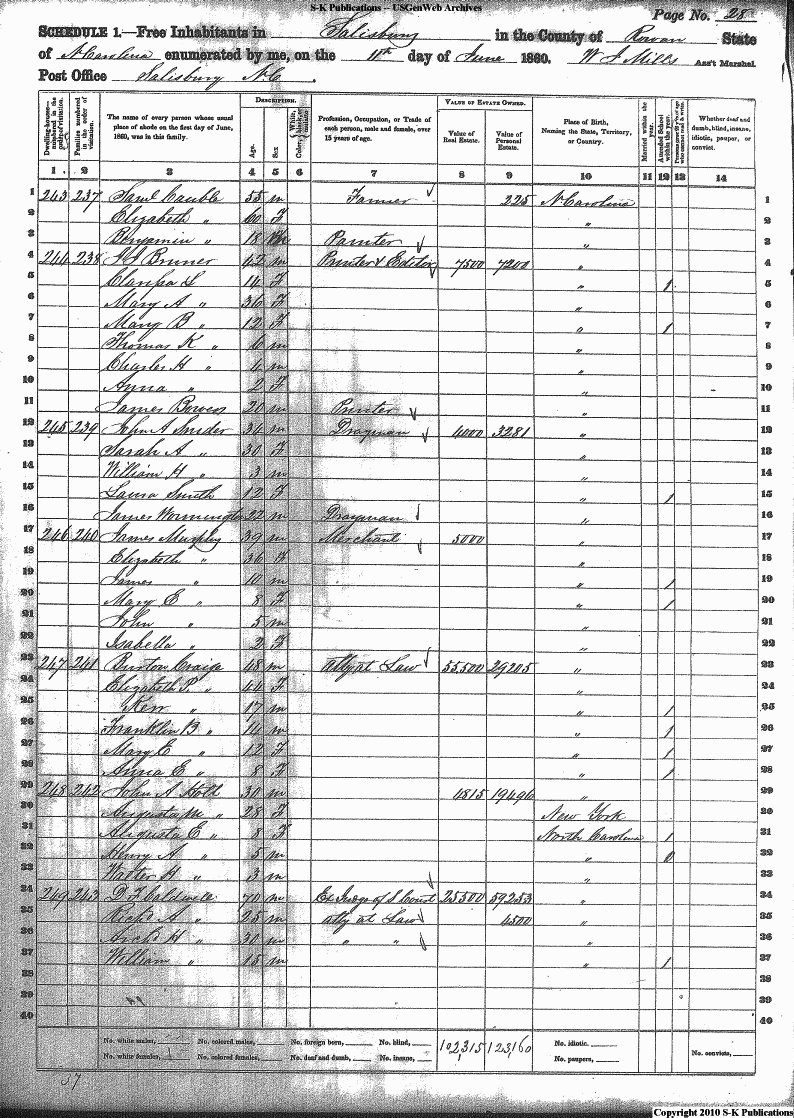 S-K Publications -- USGenWeb Archives
Page No. 28
SCHEDULE 1.—Free Inhabitants in Salisbury in the County of Rowan State
of N Carolina enumerated by me, on the 11th day of June 1860. W J Mills Ass't Marshal.
Post Office Salisbury N C.
Dwelling-houses numbered in the order of visitation. Families numbered in the order of visitation. The name of every person whose usual place of abode on the first day of June, 1860, was in this family. DESCRIPTION. Age. Sex. Color, White, black, or mulatto. Profession, Occupation, or Trade of each person, male and female, over 15 years of age. VALUE OF ESTATE OWNED. Value of Real Estate. Value of Personal Estate. Place of Birth, Naming the State, Territory, or Country. Married within the year. Attended School within the year. Persons over 20 y'rs of age who cannot read & write. Whether deaf and dumb, blind, insane, idiotic, pauper, or convict.
1 2 3 4 5 6 7 8 9 10 11 12 13 14
1 243 237 Saml Cauble 55 m Farmer 225 N Carolina 1
2 Elizabeth " 60 F " 2
3 Benjamin " 18 m Painter " 3
4 244 238 J J Bruner 42 m Printer & Editor 7500 7200 " 4
5 Clarissa S 14 F " 1 5
6 Mary A " 36 F " 6
7 Mary B " 12 F " 1 7
8 Thomas K " 6 m " 8
9 Charles H " 4 m " 9
10 Anna " 2 F " 10
11 James Bowers 20 m Printer " 11
12 245 239 John A Snider 34 m Drayman 4000 3281 " 12
13 Sarah A " 30 F " 13
14 William H " 3 m " 14
15 Laura Smith 12 F " 1 15
16 James Wormington 22 m Drayman " 16
17 246 240 James Murphy 39 m Merchant 5000 " 17
18 Elizabeth " 36 F " 18
19 James " 10 m " 1 19
20 Mary E " 8 F " 1 20
21 John " 5 m " 21
22 Isabella " 2 F " 22
23 247 241 Burton Craige 48 m Atty at Law 55,500 29205 " 23
24 Elizabeth P. " 44 F " 24
25 Kerr " 17 m " 1 25
26 Franklin B " 14 m " 1 26
27 Mary E " 12 F " 1 27
28 Anna E " 8 F " 1 28
29 248 242 John A Hold 30 m 4815 19496 " 29
30 Augusta M " 28 F New York 30
31 Augusta E " 8 F North Carolina 1 31
32 Henry A " 5 m " 32
33 Walter H " 3 m " 33
34 249 243 D F Caldwell 70 m Ex Judge of S Court 25500 59253 " 34
35 Richd A " 25 m Atty at Law 4500 " 35
36 Archd H " 30 m " " " 36
37 William " 15 m " 1 37
38 38
39 39
40 40
No. white males, No. colored males, No. foreign born, No. blind, 102,315 123,160 No. idiotic.
No. white females, No. colored females, No. deaf and dumb, No. insane, No. paupers, No. convicts,
Copyright 2010 S-K Publications